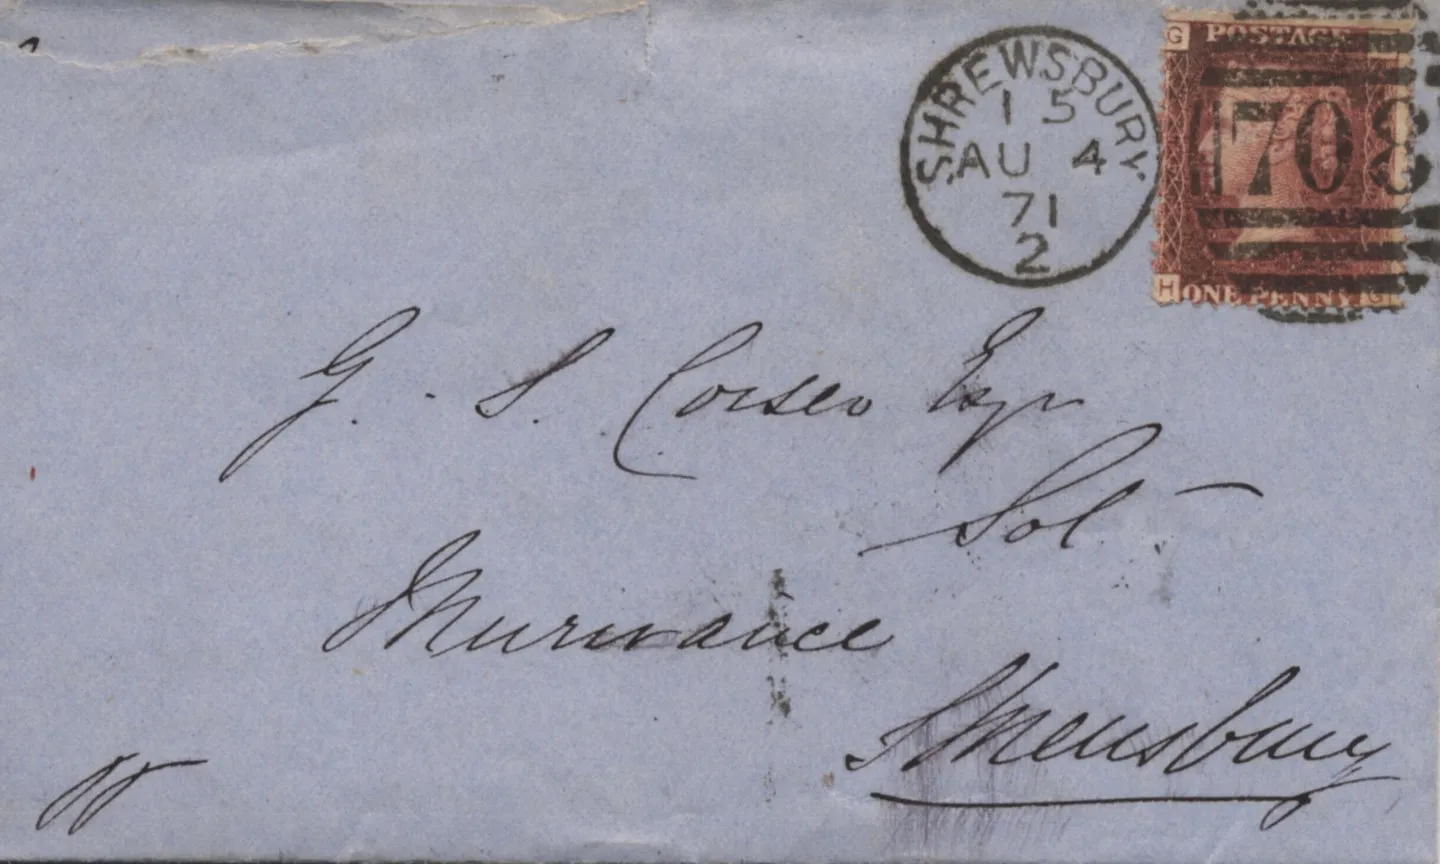 SHREWSBURY
1 5
AU 4
71
2
G POSTAGE
708
H ONE PENNY G
G. S. Corser Esqr
Sol
Murivance
Shrewsbury